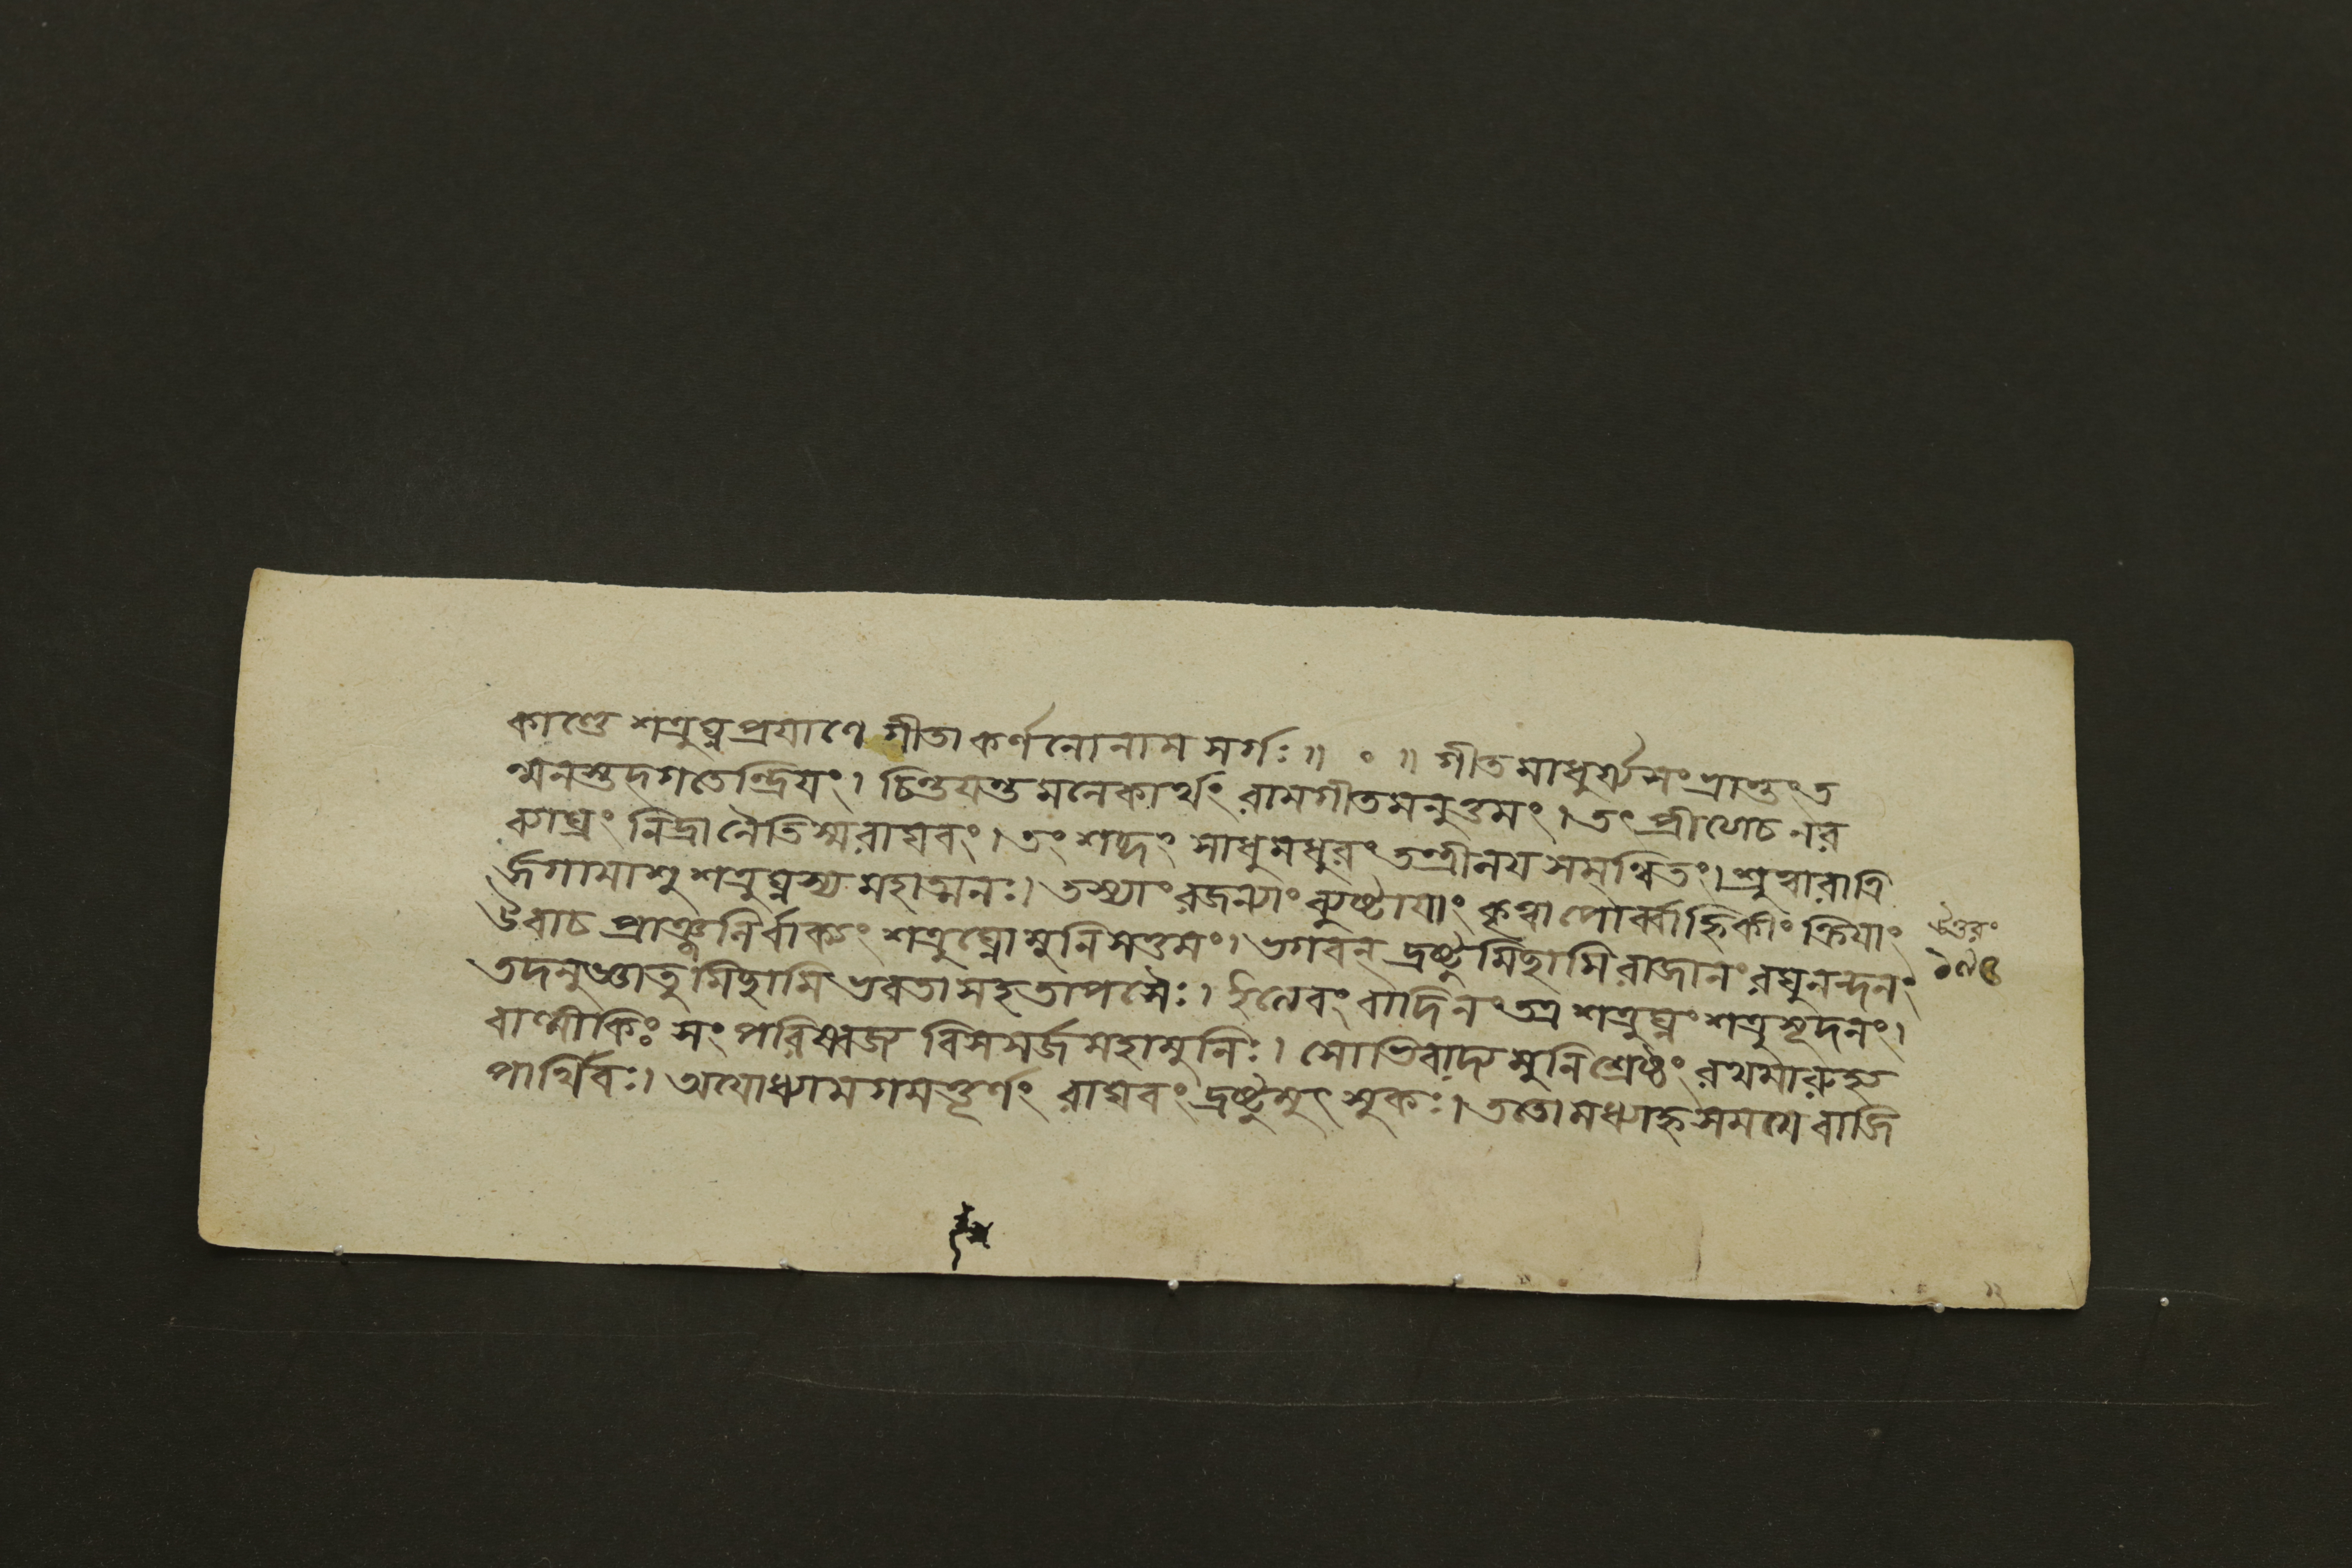 কাণ্ডে শত্রুঘ্নপ্রযাণে গীতাকর্ণনোনাম সর্গঃ॥ ০ ॥ গীতমাধুর্য্যসংভ্রান্তং ত
ন্মনস্তদ্গতেন্দ্রিযং। চিন্তযন্তমনেকার্থং রামগীতমনুত্তমং। তং প্রীণেচ নর
ব্যাঘ্রং নিদ্রানৈতিস্মরাঘবং। তং শব্দং সাধুমধুরং তন্ত্রীলয সমন্বিতং। শ্রুত্বারাত্রি
র্জগামাশু শত্রুঘ্নস্য মহাত্মনঃ। তস্যাং রজন্যাং ব্যুষ্টাযাং কৃত্বাপৌর্ব্বাহ্নিকীং ক্রিযাং
উবাচ প্রাঞ্জলির্বাক্যং শত্রুঘ্নোমুনিসত্তমং। ভগবন্ দ্রষ্টুমিছামি রাজানং রঘুনন্দনং
তদনুজ্ঞাতুমিছামি ভবতা সহতাপসৈঃ। ইত্যেবং বাদিনং তত্র শত্রুঘ্নং শত্রুসূদনং।
বাল্মীকিঃ সংপরিষ্বজ্য বিসসর্জমহামুনিঃ। সোভিবাদ্য মুনিশ্রেষ্ঠং রথমারুহ্য
পার্থিবঃ। অযোধ্যামগমত্তূর্ণং রাঘবং দ্রষ্টুমুৎসুকঃ। ততোমধ্যাহ্নসমযে বাজি
উত্তরং
১৭৫